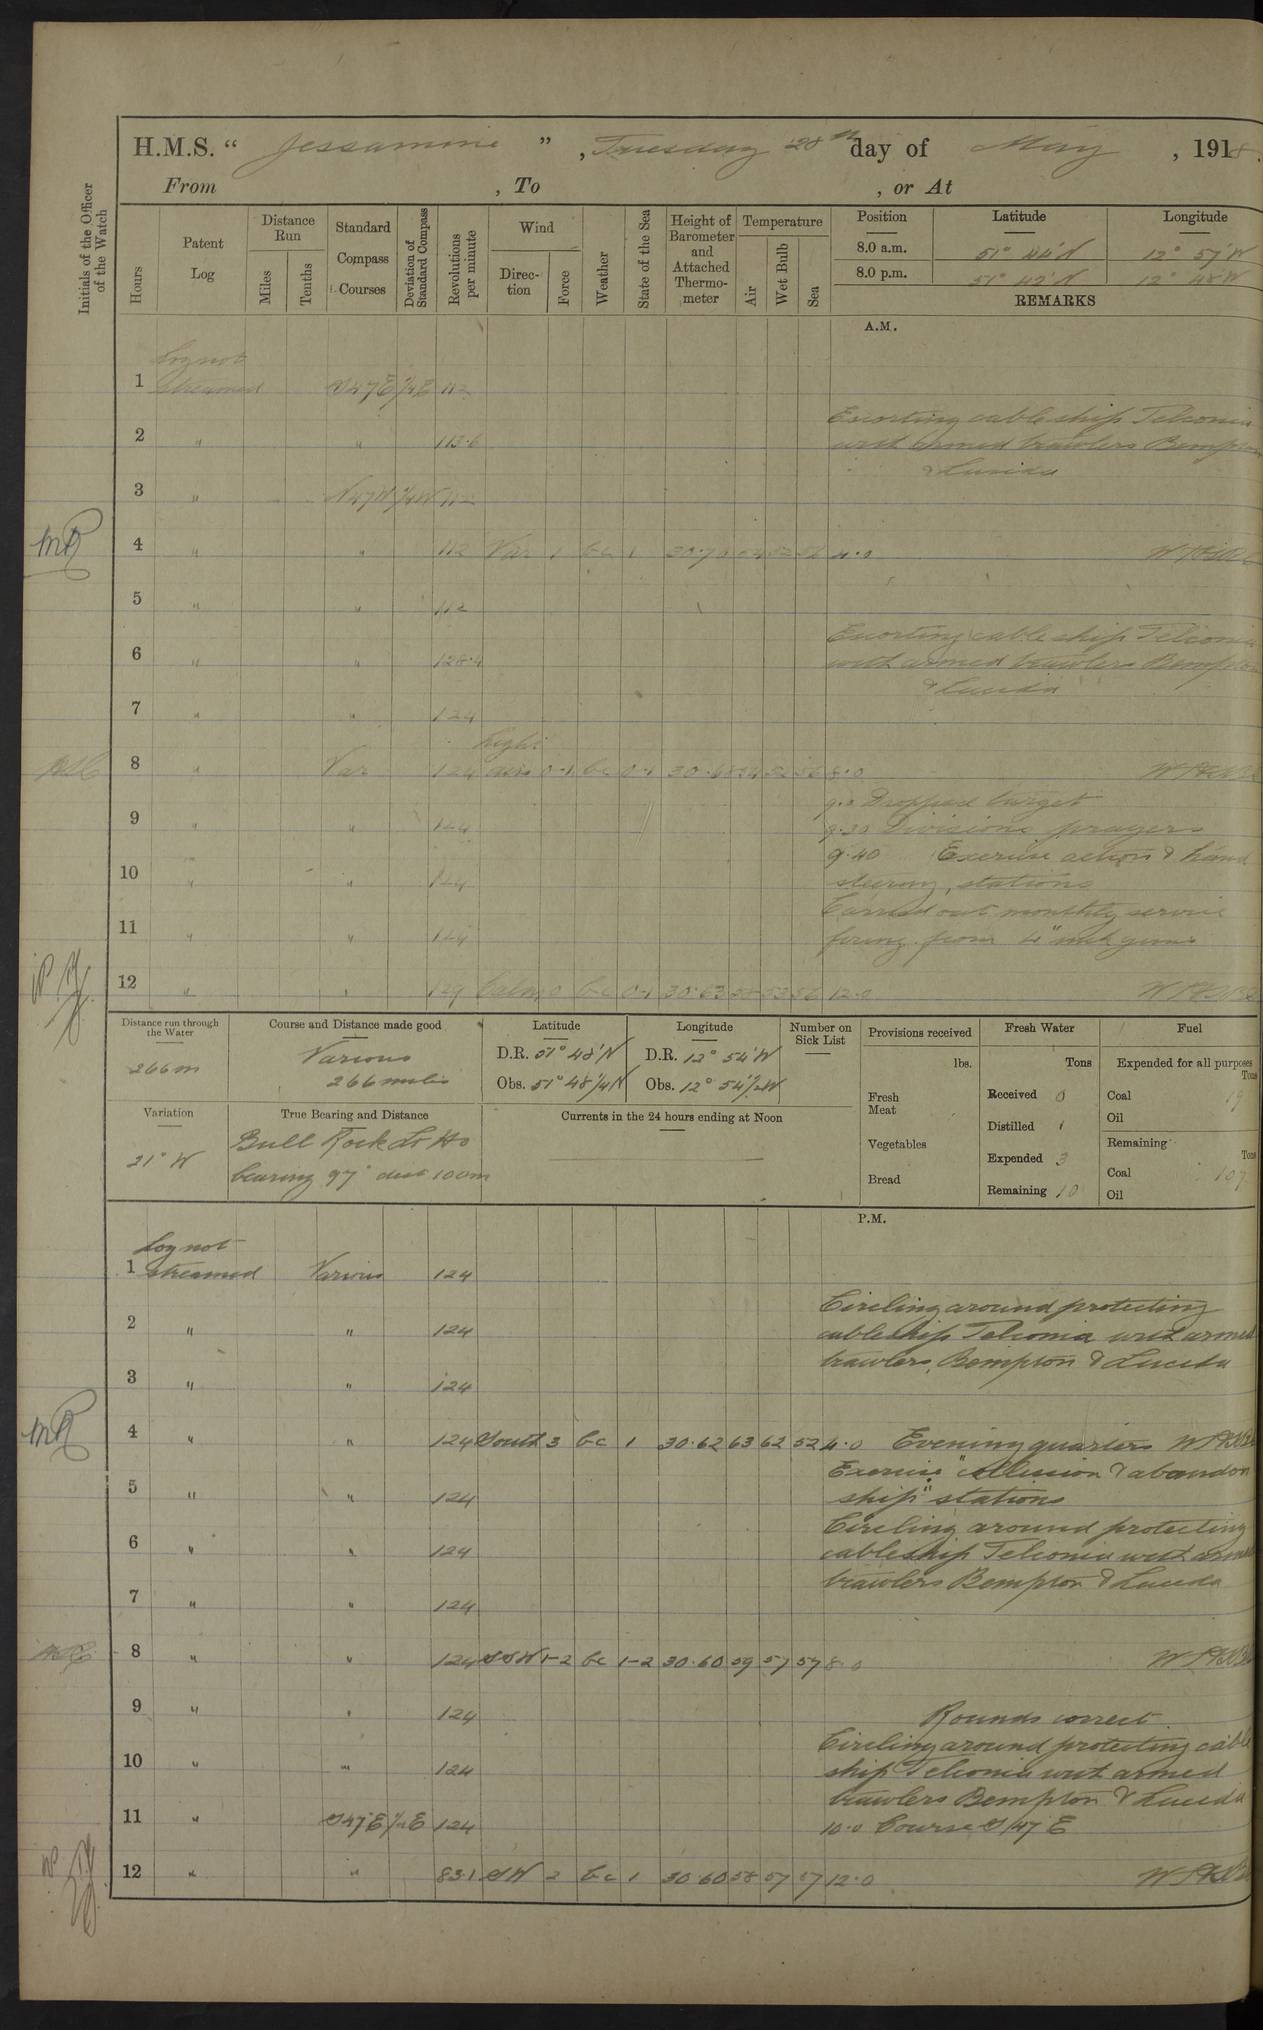 H.M.S. “ Jessamine ” , Tuesday 28th day of May , 1918.
From , To , or At
Initials of the Officer of the Watch
Hours
Patent Log
Distance Run
Miles
Tenths
Standard Compass Courses
Deviation of Standard Compass
Revolutions per minute
Wind
Direction
Force
Weather
State of the Sea
Height of Barometer and Attached Thermometer
Temperature
Air
Wet Bulb
Sea
Position Latitude Longitude
8.0 a.m. 51° 44'N 12° 57'W
8.0 p.m. 51° 42'N 12° 48'W
REMARKS
A.M.
Log not
1 streamed S47E 1/4E 112
Escorting cable ship Telconia
2 " " 113.6 with armed trawlers Bempton
& Lucida
3 " N47W 1/4W 112
4 " " 112 Var 1 bc 1 30.70 54 52 56 4.0
5 " " 112
Escorting cable ship Telconia
6 " " 128.4 with armed trawlers Bempton
& Lucida
7 " " 124
light
8 " Var 124 airs 0-1 bc 0-1 30.68 54 52 56 8.0
9.0 Dropped target
9 " " 124 9.30 Divisions, prayers
9.40 Exercise action & hand
10 " " 124 steering, stations
Carried out monthly service
11 " " 124 firing from 4" inch guns
12 " " 129 Calm 0 bc 0-1 30.63 58 53 56 12.0
Distance run through the Water
266m
Course and Distance made good
Various
266 miles
Latitude
D.R. 51° 48'N
Obs. 51° 48 1/4N
Longitude
D.R. 12° 54'W
Obs. 12° 54 1/2W
Number on Sick List
Provisions received
lbs.
Fresh Meat
Vegetables
Bread
Fresh Water
Tons
Received 0
Distilled 1
Expended 3
Remaining 10
Fuel
Expended for all purposes
Tons
Coal 19
Oil
Remaining
Tons
Coal 107
Oil
Variation
21° W
True Bearing and Distance
Bull Rock Lt Ho
bearing 97° dist 100m
Currents in the 24 hours ending at Noon
P.M.
Log not
1 streamed Various 124
Circling around protecting
2 " " 124 cableship Telconia with armed
trawlers, Bempton & Lucida
3 " " 124
4 " " 124 South 3 bc 1 30.62 63 62 52 4.0 Evening quarters
Exercise "collision & abandon
5 " " 124 ship" stations
Circling around protecting
6 " " 124 cableship Telconia with armed
trawlers Bempton & Lucida
7 " " 124
8 " " 124 SSW 1-2 bc 1-2 30.60 59 57 57 8.0
9 " " 124 Rounds correct
Circling around protecting cable
10 " " 124 ship Telconia with armed
trawlers Bempton & Lucida
11 " S47E 1/4E 124 10.0 Course S 47 E
12 " " 83.1 SW 2 bc 1 30.60 58 57 57 12.0